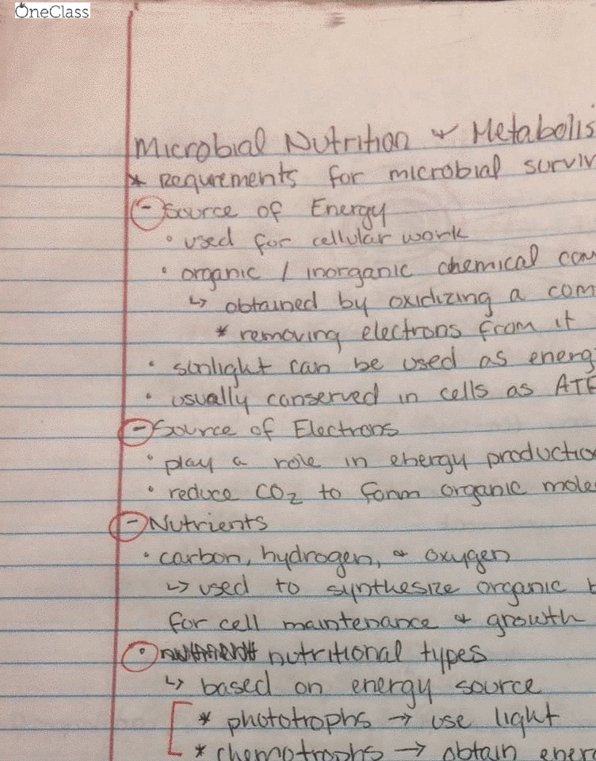 OneClass
Microbial Nutrition & Metabolis
* Requrements for microbial surviv
- Source of Energy
• used for cellular work
• organic / inorganic chemical com
↳ obtained by oxidizing a com
* removing electrons from it
• sunlight can be used as energ
• usually conserved in cells as ATP
- Source of Electrons
• play a role in energy productio
• reduce CO₂ to form organic mole
- Nutrients
• carbon, hydrogen, & oxygen
↳ used to synthesize organic
for cell maintenance & growth
• nutritional types
↳ based on energy source
* phototrophs → use light
* chemotrophs → obtain ener